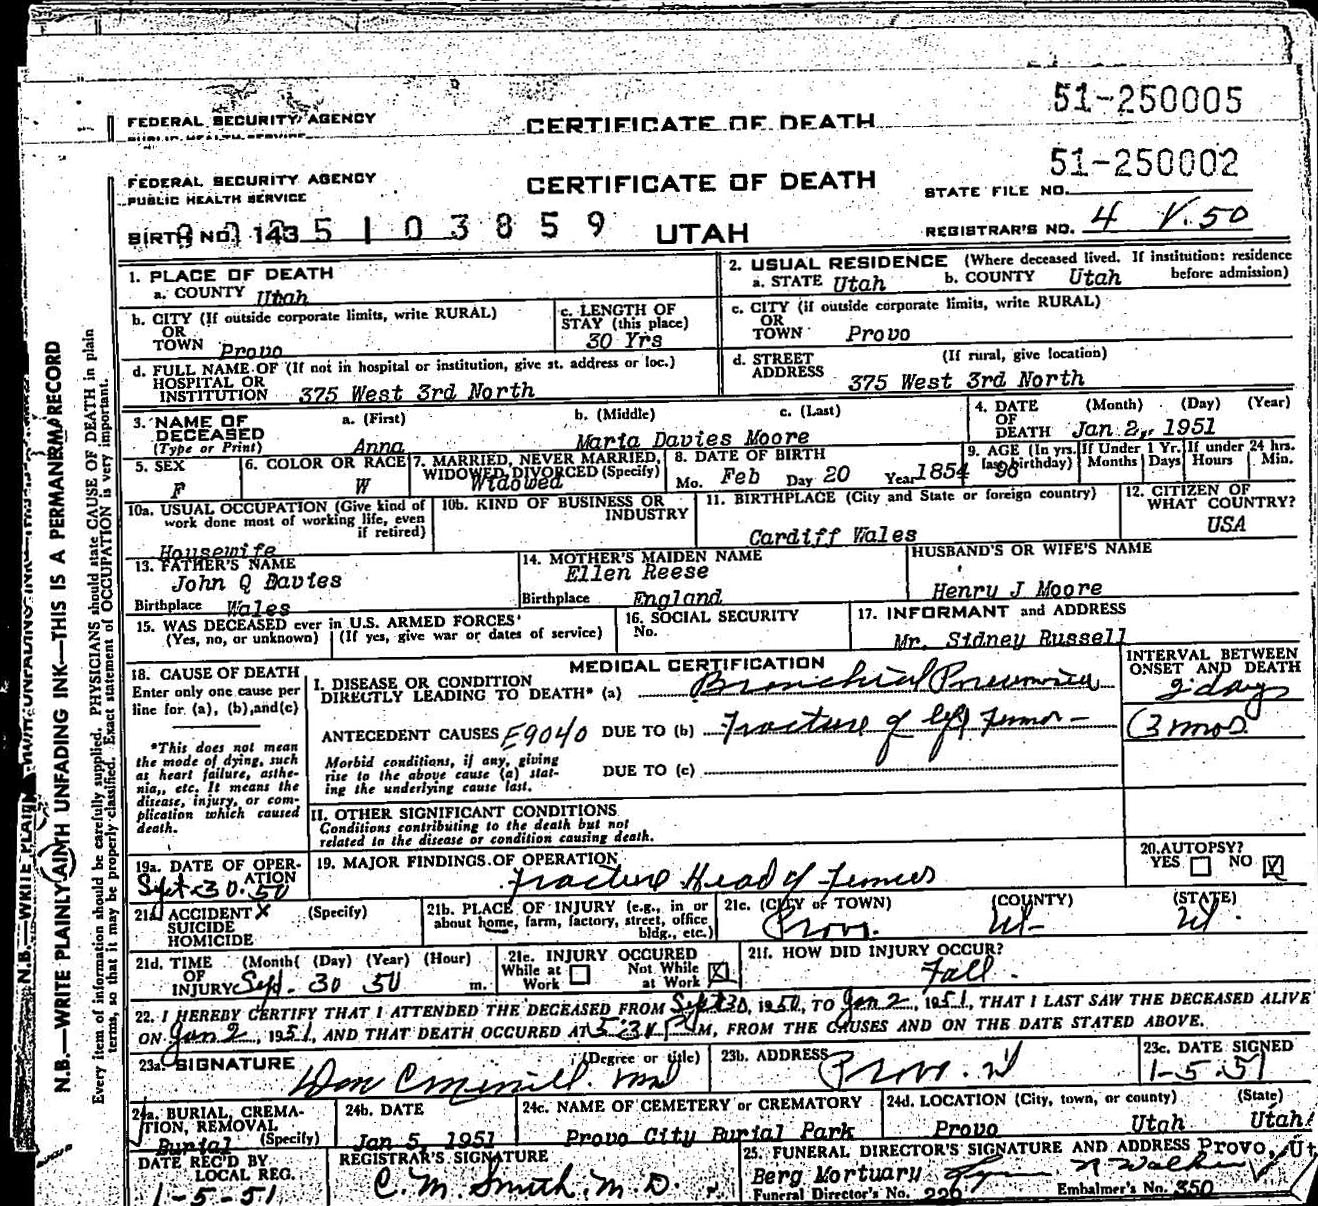 51-250005
FEDERAL SECURITY AGENCY
PUBLIC HEALTH SERVICE
CERTIFICATE OF DEATH
51-250002
FEDERAL SECURITY AGENCY
PUBLIC HEALTH SERVICE
CERTIFICATE OF DEATH
STATE FILE NO.
BIRTH NO. 143 5 1 0 3 8 5 9 UTAH
REGISTRAR'S NO. 4 V.50
1. PLACE OF DEATH
a. COUNTY Utah
2. USUAL RESIDENCE (Where deceased lived. If institution: residence before admission)
a. STATE Utah b. COUNTY Utah
b. CITY (If outside corporate limits, write RURAL)
OR
TOWN Provo
c. LENGTH OF
STAY (this place)
30 Yrs
c. CITY (if outside corporate limits, write RURAL)
OR
TOWN Provo
d. FULL NAME OF (If not in hospital or institution, give st. address or loc.)
HOSPITAL OR
INSTITUTION 375 West 3rd North
d. STREET (If rural, give location)
ADDRESS 375 West 3rd North
3. NAME OF
DECEASED
(Type or Print)
a. (First) b. (Middle) c. (Last)
Anna Maria Davies Moore
4. DATE (Month) (Day) (Year)
OF
DEATH Jan 2, 1951
5. SEX
F
6. COLOR OR RACE
W
7. MARRIED, NEVER MARRIED,
WIDOWED, DIVORCED (Specify)
Widowed
8. DATE OF BIRTH
Mo. Feb Day 20 Year 1854
9. AGE (In yrs. last birthday)
96
If Under 1 Yr. If under 24 hrs.
Months Days Hours Min.
10a. USUAL OCCUPATION (Give kind of
work done most of working life, even
if retired)
Housewife
10b. KIND OF BUSINESS OR
INDUSTRY
11. BIRTHPLACE (City and State or foreign country)
Cardiff Wales
12. CITIZEN OF
WHAT COUNTRY?
USA
13. FATHER'S NAME
John Q Davies
Birthplace Wales
14. MOTHER'S MAIDEN NAME
Ellen Reese
Birthplace England
HUSBAND'S OR WIFE'S NAME
Henry J Moore
15. WAS DECEASED ever in U.S. ARMED FORCES'
(Yes, no, or unknown) (If yes, give war or dates of service)
16. SOCIAL SECURITY
No.
17. INFORMANT and ADDRESS
Mr. Sidney Russell
18. CAUSE OF DEATH
Enter only one cause per
line for (a), (b), and (c)
*This does not mean
the mode of dying, such
as heart failure, asthe-
nia,, etc. It means the
disease, injury, or com-
plication which caused
death.
MEDICAL CERTIFICATION
I. DISEASE OR CONDITION
DIRECTLY LEADING TO DEATH* (a) Bronchial Pneumonia
INTERVAL BETWEEN
ONSET AND DEATH
2 days
ANTECEDENT CAUSES E9040 DUE TO (b) Fracture of left Femor -
(3 mos.
Morbid conditions, if any, giving
rise to the above cause (a) stat-
ing the underlying cause last.
DUE TO (c)
II. OTHER SIGNIFICANT CONDITIONS
Conditions contributing to the death but not
related to the disease or condition causing death.
19a. DATE OF OPER-
ATION
Sept. 30. 50
19. MAJOR FINDINGS OF OPERATION
Fracture Head of Femur
20. AUTOPSY?
YES NO
21a ACCIDENT X (Specify)
SUICIDE
HOMICIDE
21b. PLACE OF INJURY (e.g., in or
about home, farm, factory, street, office
bldg., etc.)
21c. (CITY or TOWN) (COUNTY) (STATE)
Provo. Ut- Ut.
21d. TIME (Month( (Day) (Year) (Hour)
OF
INJURY Sept. 30 50 m.
21e. INJURY OCCURED
While at Work Not While at Work
21f. HOW DID INJURY OCCUR?
Fall.
22. I HEREBY CERTIFY THAT I ATTENDED THE DECEASED FROM Sept 30, 1950, TO Jan 2, 1951, THAT I LAST SAW THE DECEASED ALIVE
ON Jan 2, 1951, AND THAT DEATH OCCURED AT 5:31 P M, FROM THE CAUSES AND ON THE DATE STATED ABOVE.
23a. SIGNATURE (Degree or title)
Don C Merrill. MD
23b. ADDRESS
Provo. Ut
23c. DATE SIGNED
1-5-51
24a. BURIAL, CREMA-
TION, REMOVAL
Burial (Specify)
24b. DATE
Jan 5, 1951
24c. NAME OF CEMETERY or CREMATORY
Provo City Burial Park
24d. LOCATION (City, town, or county) (State)
Provo Utah Utah
DATE REC'D BY
LOCAL REG.
1-5-51
REGISTRAR'S SIGNATURE
C. M. Smith, M. D.
25. FUNERAL DIRECTOR'S SIGNATURE AND ADDRESS Provo, Ut
Berg Mortuary
Funeral Director's No. 226 Embalmer's No. 350
N.B.—WRITE PLAINLY UNFADING INK—THIS IS A PERMANENT RECORD
Every item of information should be carefully supplied. PHYSICIANS should state CAUSE OF DEATH in plain
terms, so that it may be properly classified. Exact statement of OCCUPATION is very important.